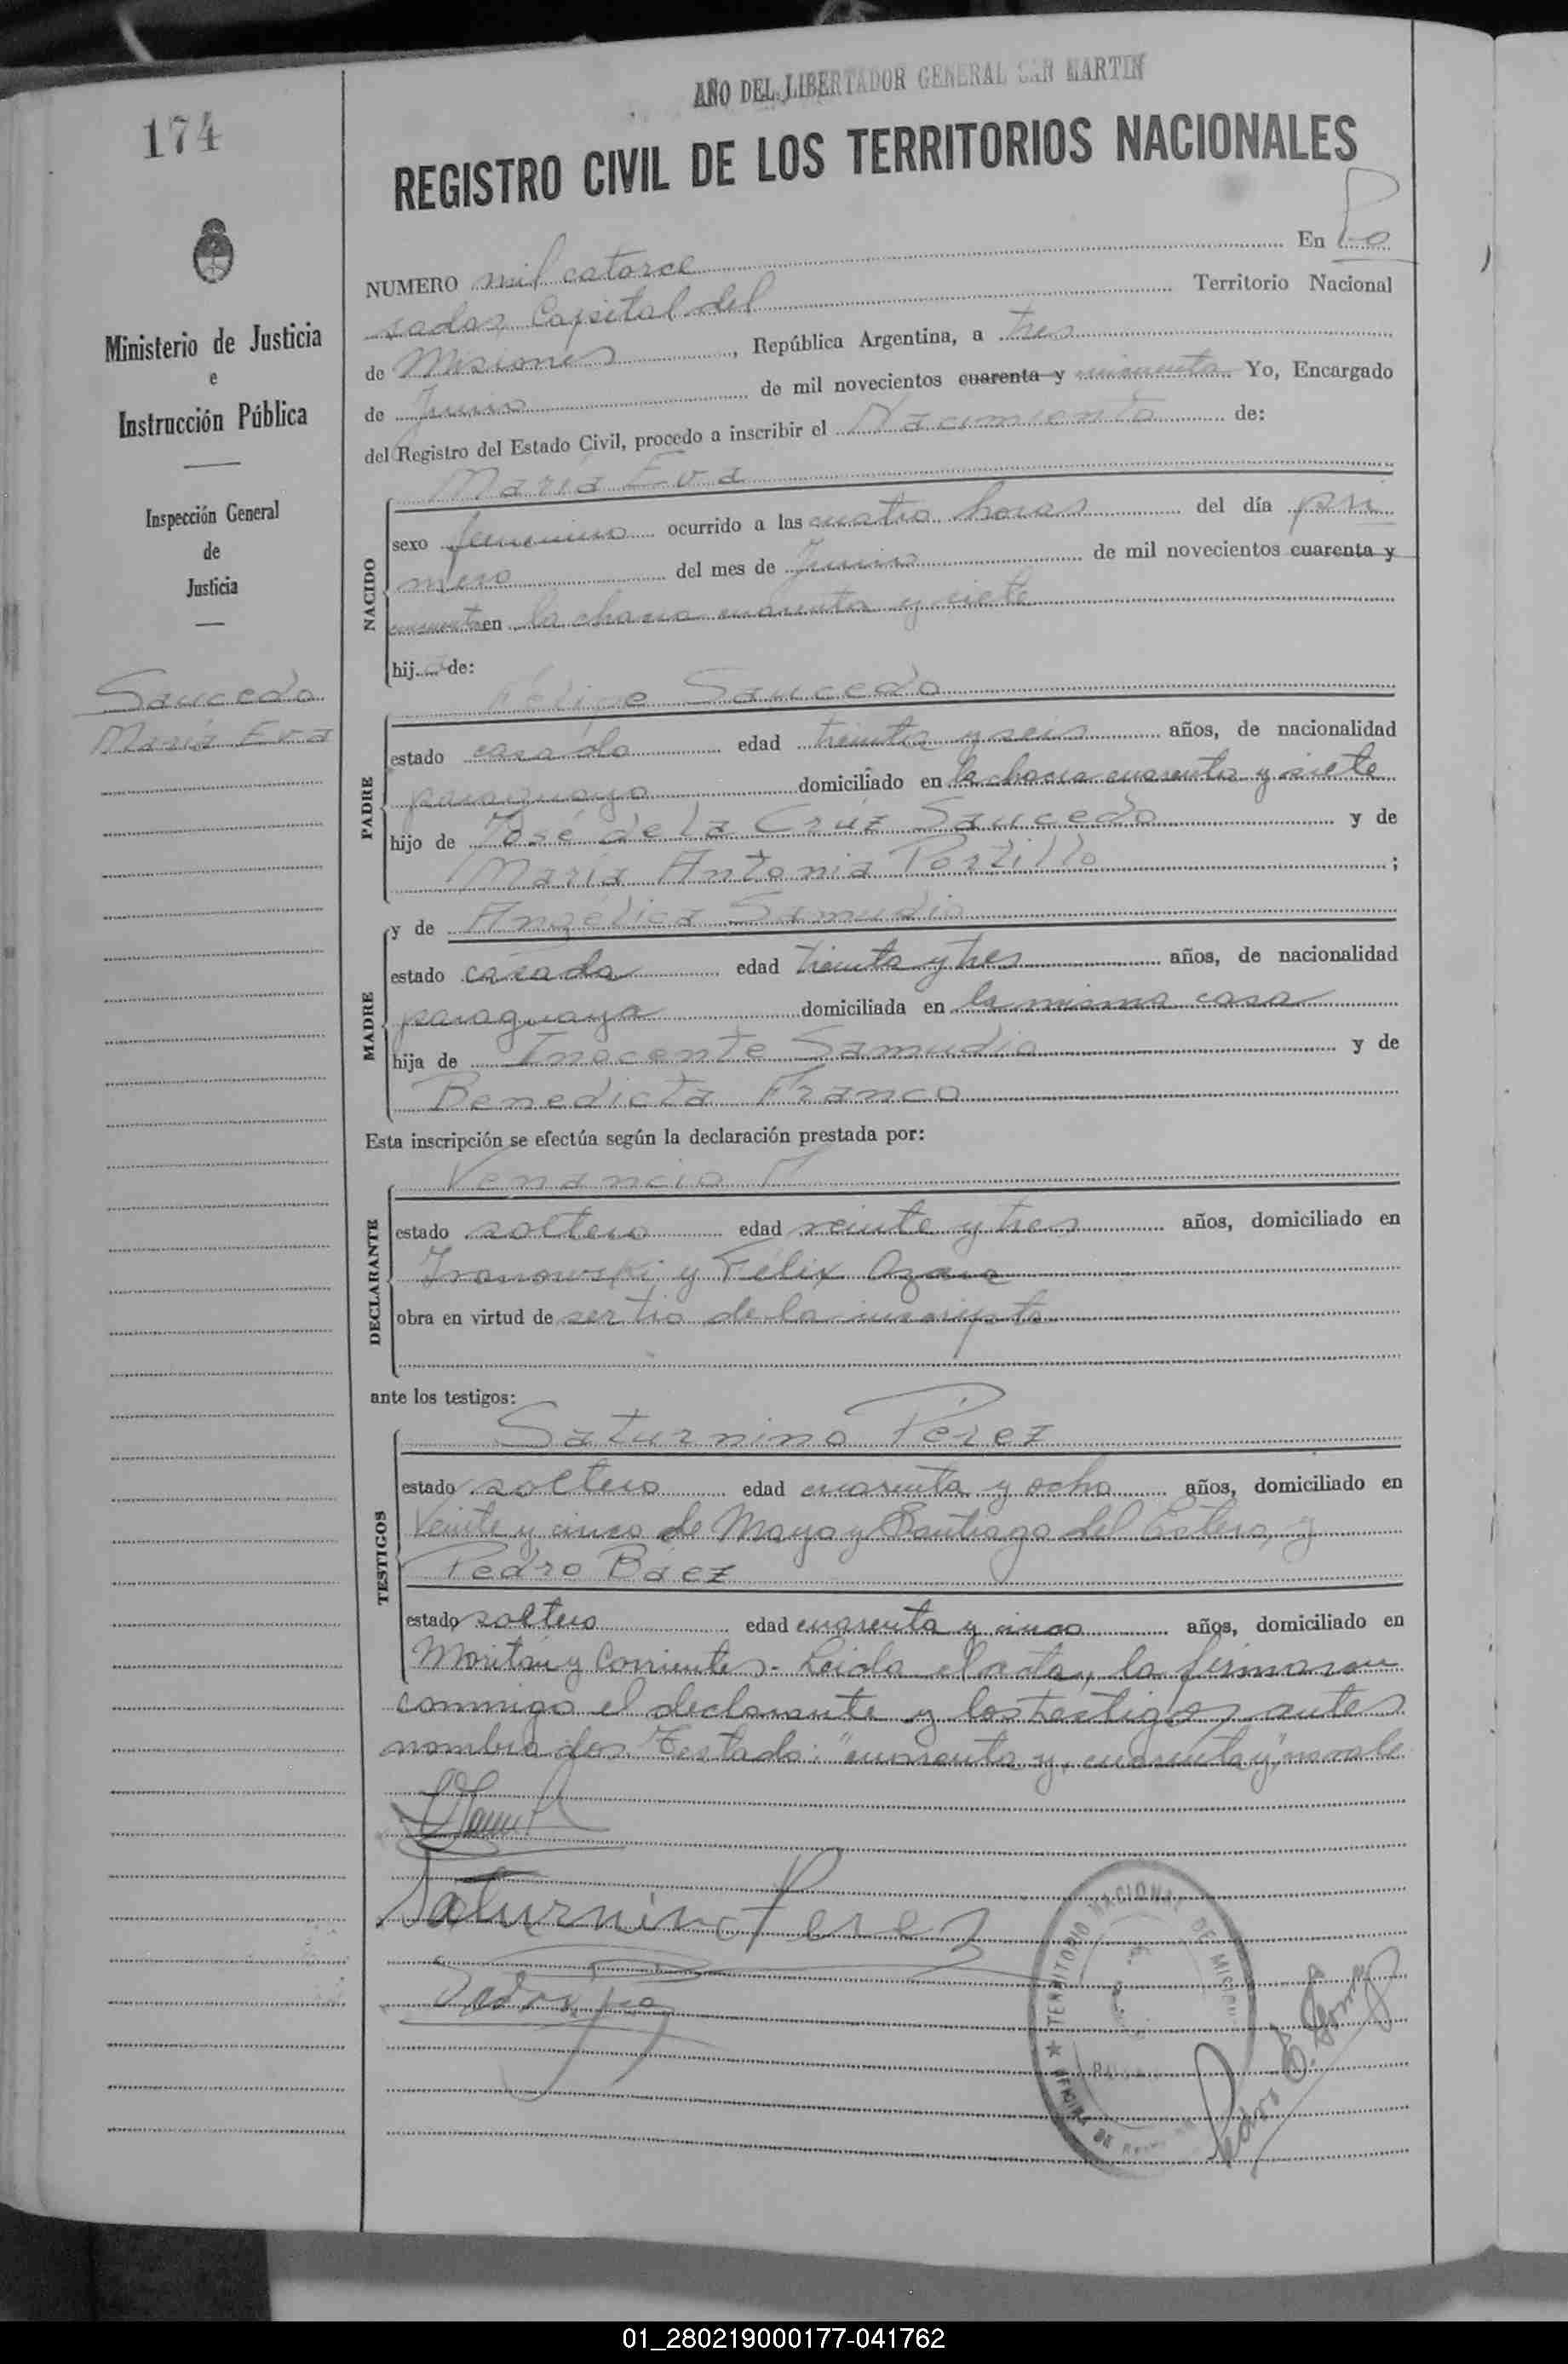 AÑO DEL LIBERTADOR GENERAL SAN MARTIN
174
REGISTRO CIVIL DE LOS TERRITORIOS NACIONALES
Ministerio de Justicia
e
Instrucción Pública
Inspección General
de
Justicia
Saucedo
María Eva
NUMERO mil catorce En Po
sadas, Capital del Territorio Nacional
de Misiones, República Argentina, a tres
de Junio de mil novecientos cuarenta y cincuenta Yo, Encargado
del Registro del Estado Civil, procedo a inscribir el Nacimiento de:
María Eva
NACIDO
sexo femenino ocurrido a las cuatro horas del día pri
mero del mes de Junio de mil novecientos cuarenta y
cincuenta en la chacra cuarenta y siete
hija de:
Felipe Saucedo
PADRE
estado casado edad treinta y seis años, de nacionalidad
paraguayo domiciliado en la chacra cuarenta y siete
hijo de José de la Cruz Saucedo y de
María Antonia Portillo;
y de Angélica Samudio
MADRE
estado casada edad treinta y tres años, de nacionalidad
paraguaya domiciliada en la misma casa
hija de Inocente Samudio y de
Benedicta Franco
Esta inscripción se efectúa según la declaración prestada por:
Venancio
DECLARANTE
estado soltero edad veinte y tres años, domiciliado en
y Félix Azara
obra en virtud de ser tio de la inscripta
ante los testigos:
Saturnino Pérez
TESTIGOS
estado soltero edad cuarenta y ocho años, domiciliado en
Veinte y cinco de Mayo y Santiago del Estero, y
Pedro Báez
estado soltero edad cuarenta y cinco años, domiciliado en
y Corrientes.- Leida el acta, la firmaron
conmigo el declarante y los testigos antes
nombrados. Testado: "cuarenta y, cuarenta y" no vale
Saturnino Perez
TERRITORIO NACIONAL DE MISIONES
01_280219000177-041762